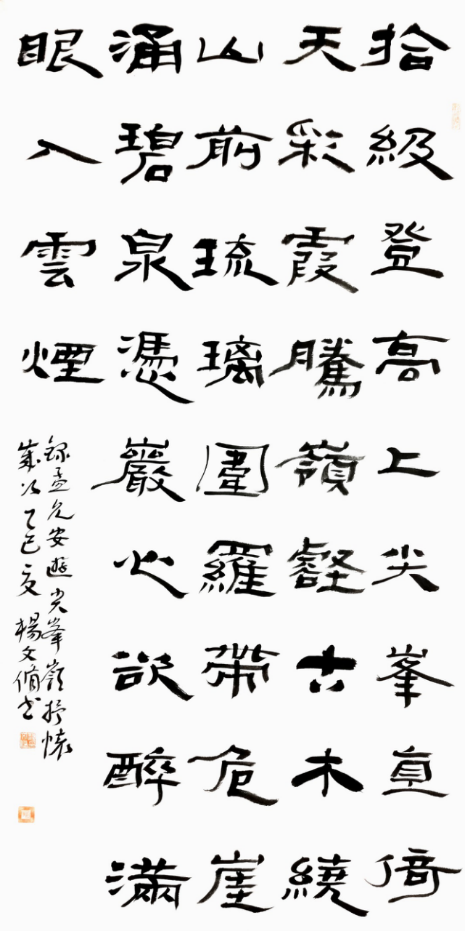 拾級登高上尖峯直倚
天彩霞騰嶺壑古木繞
山前琉璃圍羅帶危崖
涌碧泉憑巖心欲醉滿
眼入雲煙
錄孟允安遊尖峯嶺抒懷
歲次乙巳夏楊文脩书